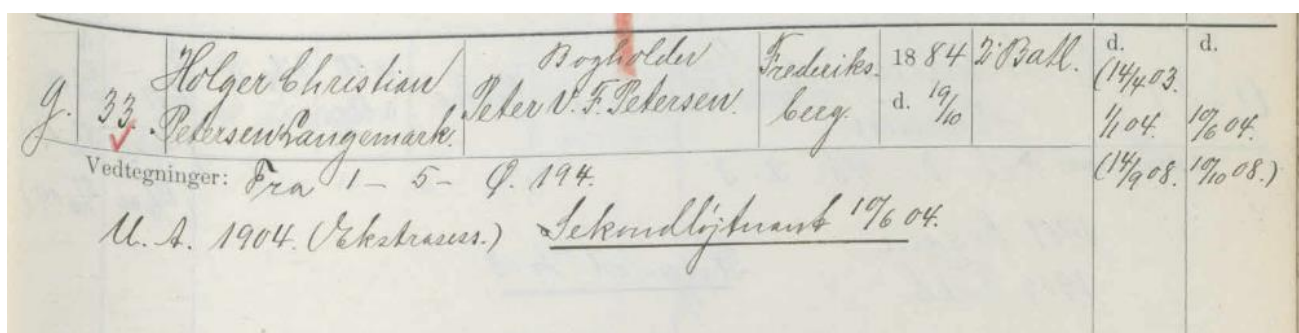 g. 33. Holger Christian Petersen Langemark. Bogholder Peter V. F. Petersen. Frederiks- berg. 1884 d. 19/10 2' Batl. d. (14/4 03. 1/1 04. (14/9 08. d. 10/6 04. 10/10 08.)
Vedtegninger: Fra 1 - 5 - Ø. 194.
U. A. 1904. (Ekstrasess.) Sekondløjtnant 10/6 04.